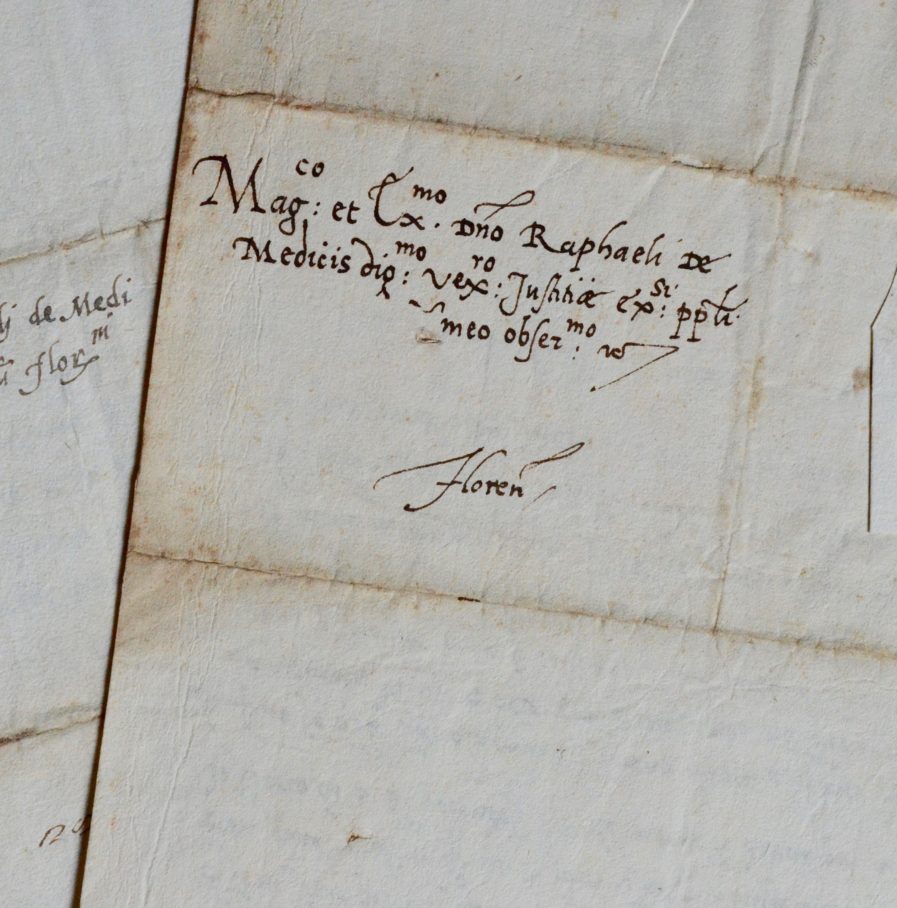 Mag:co et Ex.mo Dño Raphaeli De
Medicis dig:mo vex:ro Justitiæ ex:si ppli
meo obser:mo
Floreñ
lj de Medi
flor